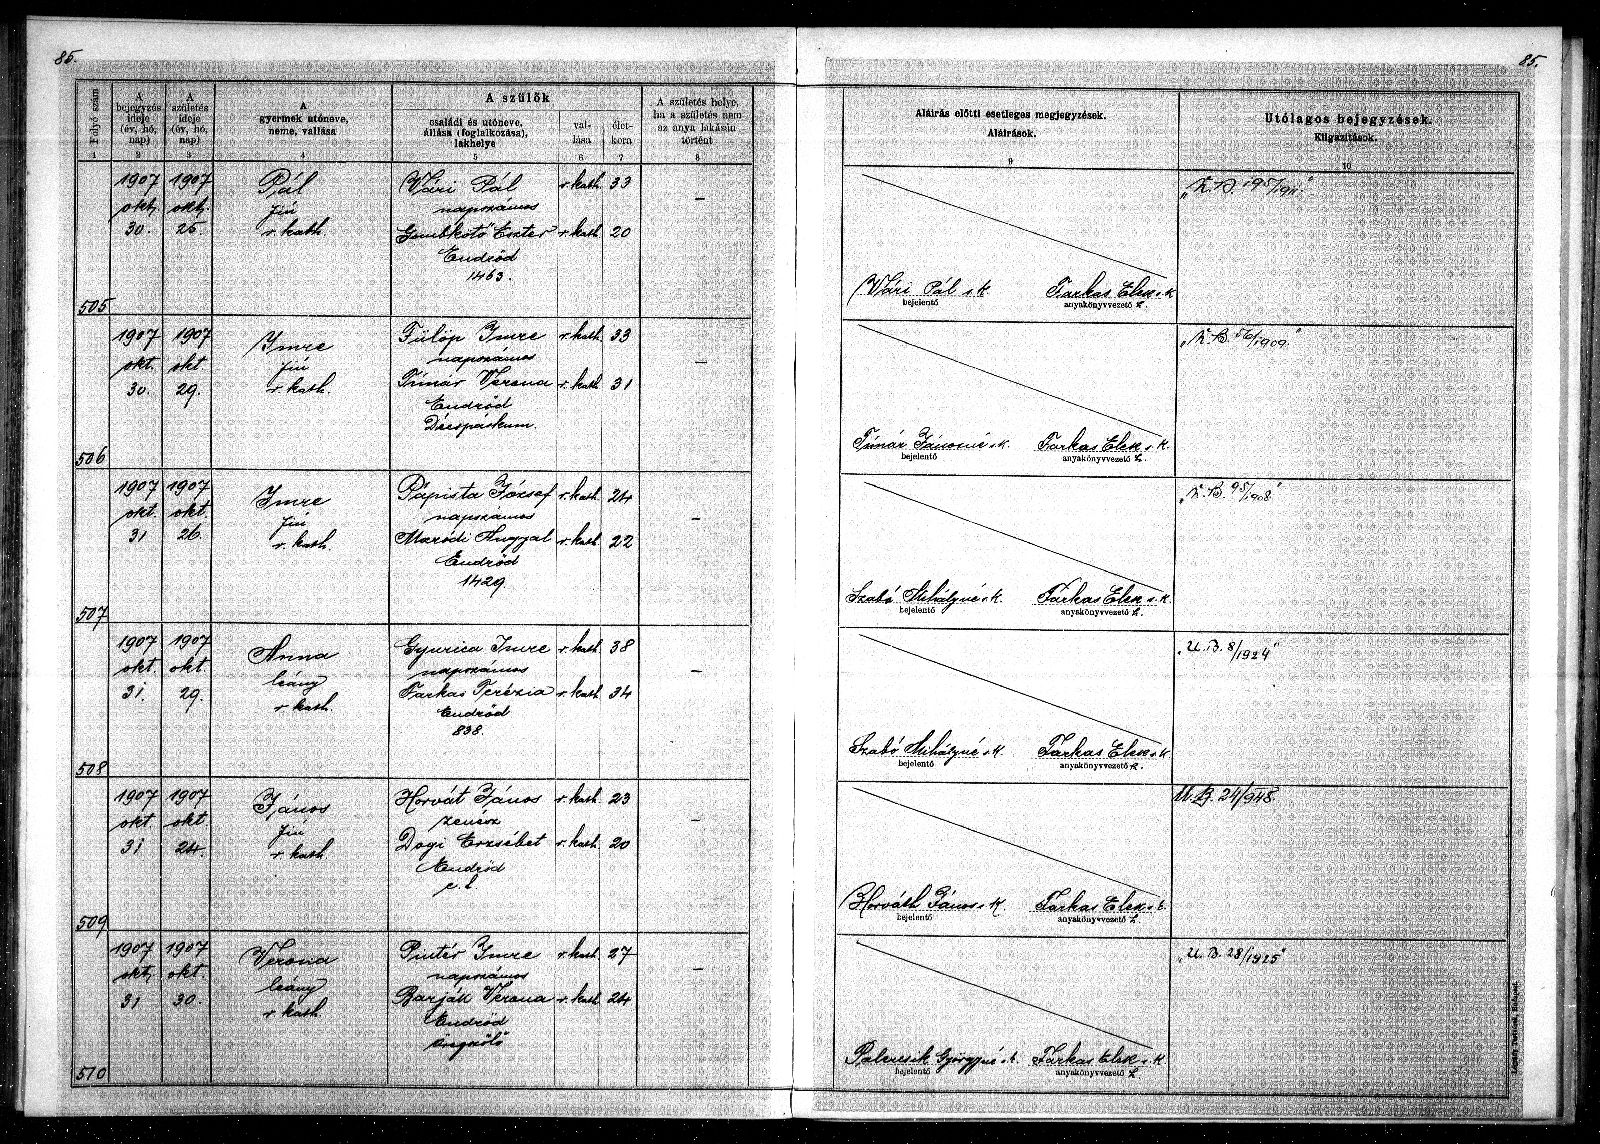 85.
Folyó szám
A bejegyzés ideje (év, hó, nap)
A születés ideje (év, hó, nap)
A gyermek utóneve, neme, vallása
A szülők
családi és utóneve, állása (foglalkozása), lakhelye
vallása
életkora
A születés helye, ha a születés nem az anya lakásán történt
1 2 3 4 5 6 7 8
1907 1907 Pál Vári Pál r. kath. 33
okt. okt. fiú napszámos –
30. 25. r. kath. Gombkötő Eszter r. kath. 20
Endrőd
1463.
505
1907 1907 Imre Fülöp Imre r. kath. 33
okt. okt fiú napszámos –
30. 29. r. kath. Tímár Verona r. kath. 31
Endrőd
Décspáskum.
506
1907 1907 Imre Papista József r. kath. 24
okt. okt. fiú napszámos –
31 26. r. kath. Maródi Angyal r. kath. 22
Endrőd
1429.
507
1907 1907 Anna Gyurica Imre r. kath. 38
okt. okt. leány napszámos –
31. 29. r. kath. Farkas Terézia r. kath. 34
Endrőd
838.
508
1907 1907 János Horvát János r. kath. 23
okt okt. fiú zenész –
31 24. r. kath. Dógi Erzsébet r. kath. 20
Endrőd
509
1907 1907 Verona Pintér Imre r. kath. 27
okt. okt leány napszámos –
31 30. r. kath. Barják Verona r. kath. 24
Endrőd
öregszőlő
510
85.
Aláirás előtti esetleges megjegyzések.
Aláirások.
9
Utólagos bejegyzések.
Kiigazítások.
10
Vári Pál s.k. Farkas Elek s.k.
bejelentő anyakönyvvezető h.
Tímár Jánosné s.k. Farkas Elek s.k.
bejelentő anyakönyvvezető h.
Szabó Mihályné s.k. Farkas Elek s.k.
bejelentő anyakönyvvezető h.
"U.B. 8/1924"
Szabó Mihályné s.k. Farkas Elek s.k.
bejelentő anyakönyvvezető h.
U.B. 24/948.
Horváth János s.k. Farkas Elek s.k.
bejelentő anyakönyvvezető h.
"U.B. 28/1925"
Palercsik Györgyné s.k. Farkas Elek s.k.
bejelentő anyakönyvvezető h.